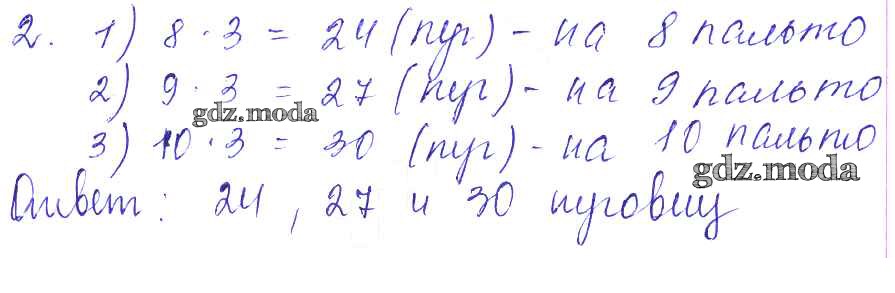 2. 1) 8 · 3 = 24 (пуг) - на 8 пальто
2) 9 · 3 = 27 (пуг) - на 9 пальто
gdz.moda
3) 10 · 3 = 30 (пуг) - на 10 пальто
gdz.moda
Ответ: 24, 27 и 30 пуговиц